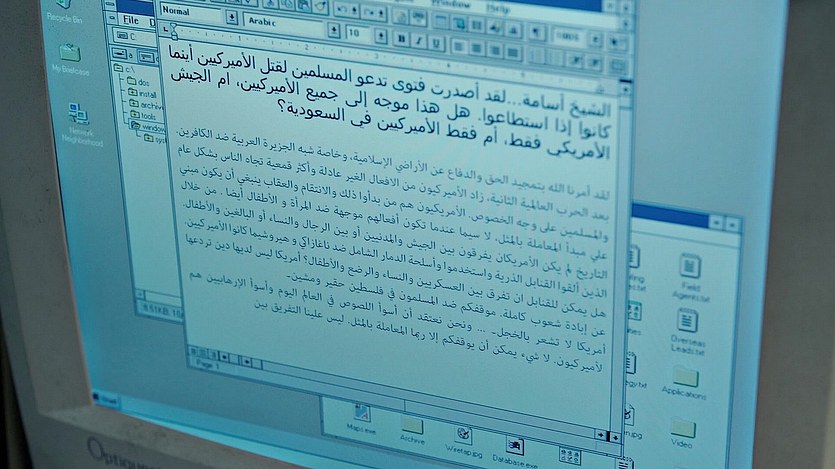 Recycle Bin
My Briefcase
Network
Neighborhood
File
D
C
c:\
dos
install
archiv
tools
window
sys
Window
Help
Normal
Arabic
10
B I U
الشيخ أسامة...لقد أصدرت فتوى تدعو المسلمين لقتل الأميركيين أينما
كانوا إذا استطاعوا. هل هذا موجه إلى جميع الأميركيين، ام الجيش
الأمريكي فقط، أم فقط الأميركيين في السعودية؟
لقد أمرنا الله بتمجيد الحق والدفاع عن الأراضي الإسلامية، وخاصة شبه الجزيرة العربية ضد الكافرين.
بعد الحرب العالمية الثانية، زاد الأميركيون من الافعال الغير عادلة وأكثر قمعية تجاه الناس بشكل عام
والمسلمين على وجه الخصوص. الأمريكيون هم من بدأوا ذلك والانتقام والعقاب ينبغي أن يكون مبني
علي مبدأ المعاملة بالمثل، لا سيما عندما تكون أفعالهم موجهة ضد المرأة و الأطفال أيضا. من خلال
التاريخ لم يكن الأمريكان يفرقون بين الجيش والمدنيين أو بين الرجال والنساء أو البالغين والأطفال.
الذين ألقوا القنابل الذرية واستخدموا وأسلحة الدمار الشامل ضد ناغازاكي و هيروشيما كانوا الأميركيين.
هل يمكن للقنابل ان تفرق بين العسكريين والنساء والرضع والأطفال؟ أمريكا ليس لديها دين تردعها
عن إبادة شعوب كاملة. موقفكم ضد المسلمون في فلسطين حقير ومشين-
أمريكا لا تشعر بالخجل- ... ونحن نعتقد أن أسوأ اللصوص في العالم اليوم وأسوأ الإرهابيين هم
لأميركيون. لا شيء يمكن أن يوقفكم إلا ربما المعاملة بالمثل. ليس علينا التفريق بين
Page 1
Field
Agents.txt
Overseas
Leads.txt
Applications
Video
Maps.exe
Archive
Wiretap.jpg
Database.exe
Optique